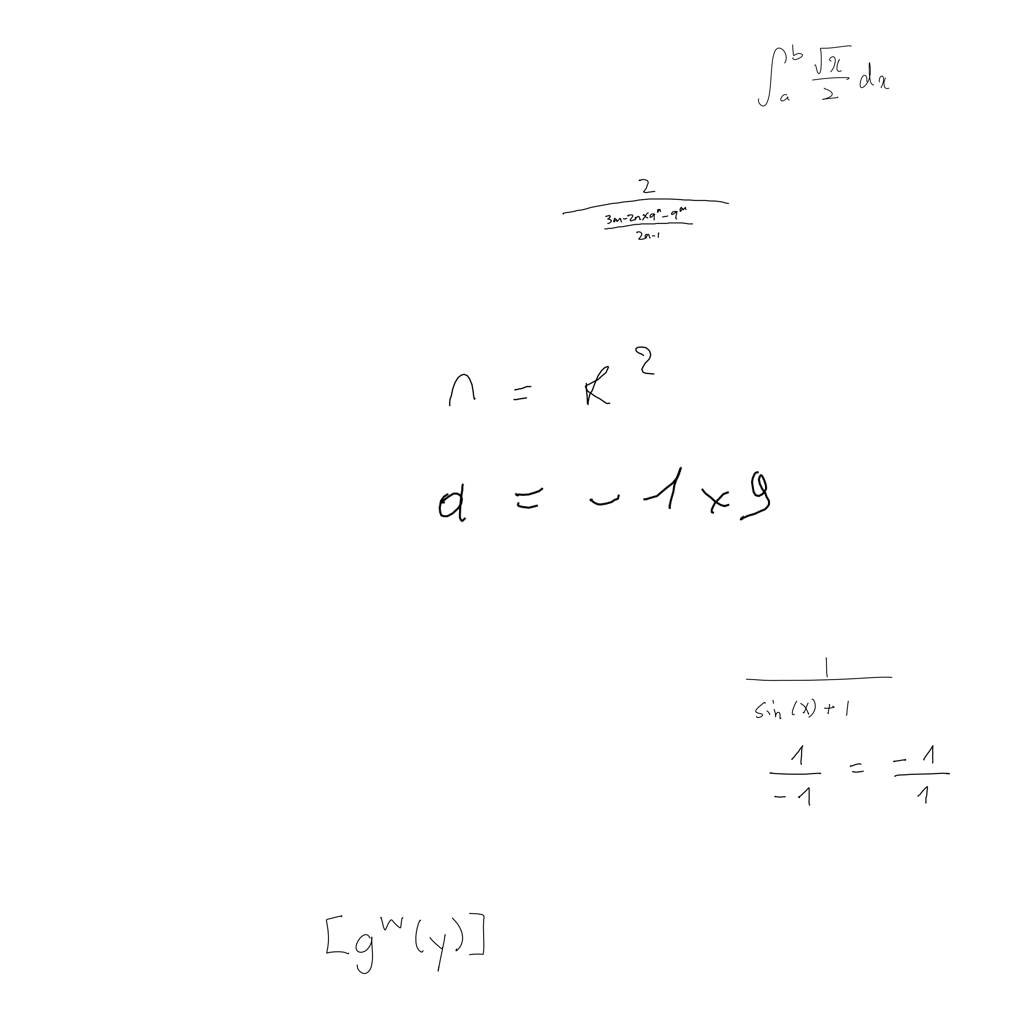 \int_a^b \frac{\sqrt{x}}{2} dx
\frac{2}{\frac{3m-2n \times 9^n - 9^m}{2n-1}}
n = k^2
d = -1 \times 9
\frac{1}{\sin(x)+1}
\frac{1}{-1} = \frac{-1}{1}
[g^w(y)]